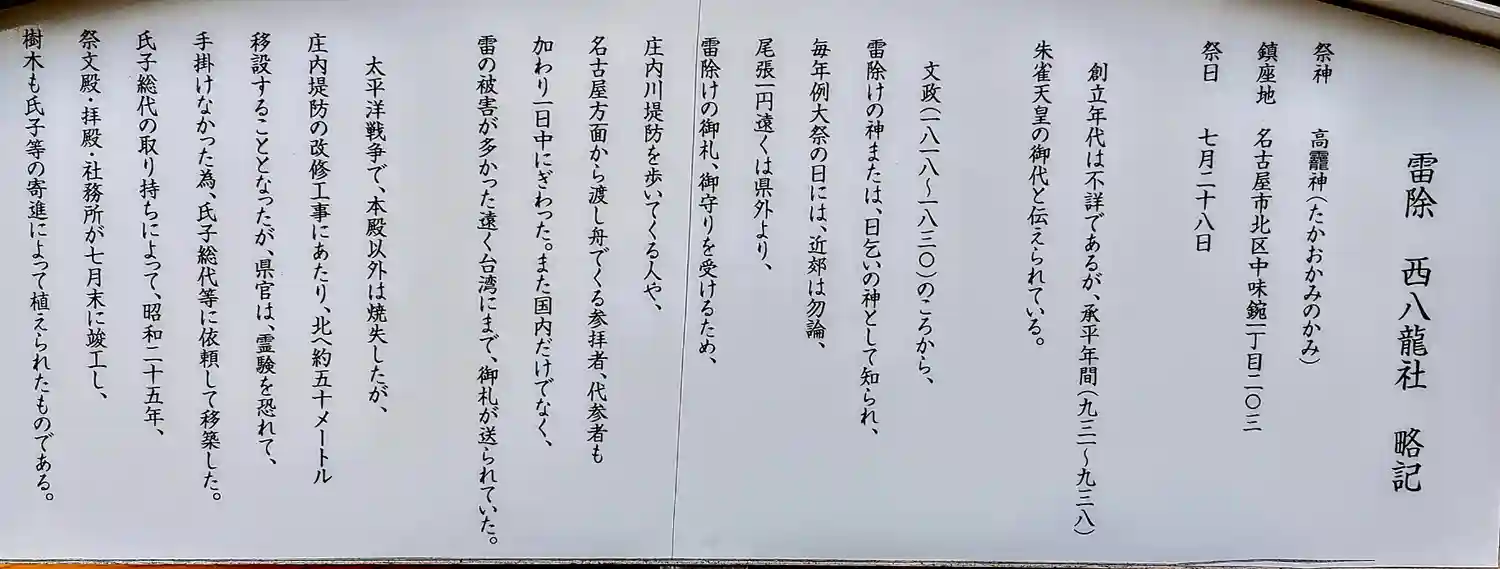 雷除 西八龍社 略記
祭神 高龗神(たかおかみのかみ)
鎮座地 名古屋市北区中味鋺一丁目二〇三
祭日 七月二十八日
創立年代は不詳であるが、承平年間(九三一〜九三八)
朱雀天皇の御代と伝えられている。
文政(一八一八〜一八三〇)のころから、
雷除けの神または、日乞いの神として知られ、
毎年例大祭の日には、近郊は勿論、
尾張一円遠くは県外より、
雷除けの御札、御守りを受けるため、
庄内川堤防を歩いてくる人や、
名古屋方面から渡し舟でくる参拝者、代参者も
加わり一日中にぎわった。また国内だけでなく、
雷の被害が多かった遠く台湾にまで、御札が送られていた。
太平洋戦争で、本殿以外は焼失したが、
庄内堤防の改修工事にあたり、北へ約五十メートル
移設することとなったが、県官は、霊験を恐れて、
手掛けなかった為、氏子総代等に依頼して移築した。
氏子総代の取り持ちによって、昭和二十五年、
祭文殿・拝殿・社務所が七月末に竣工し、
樹木も氏子等の寄進によって植えられたものである。